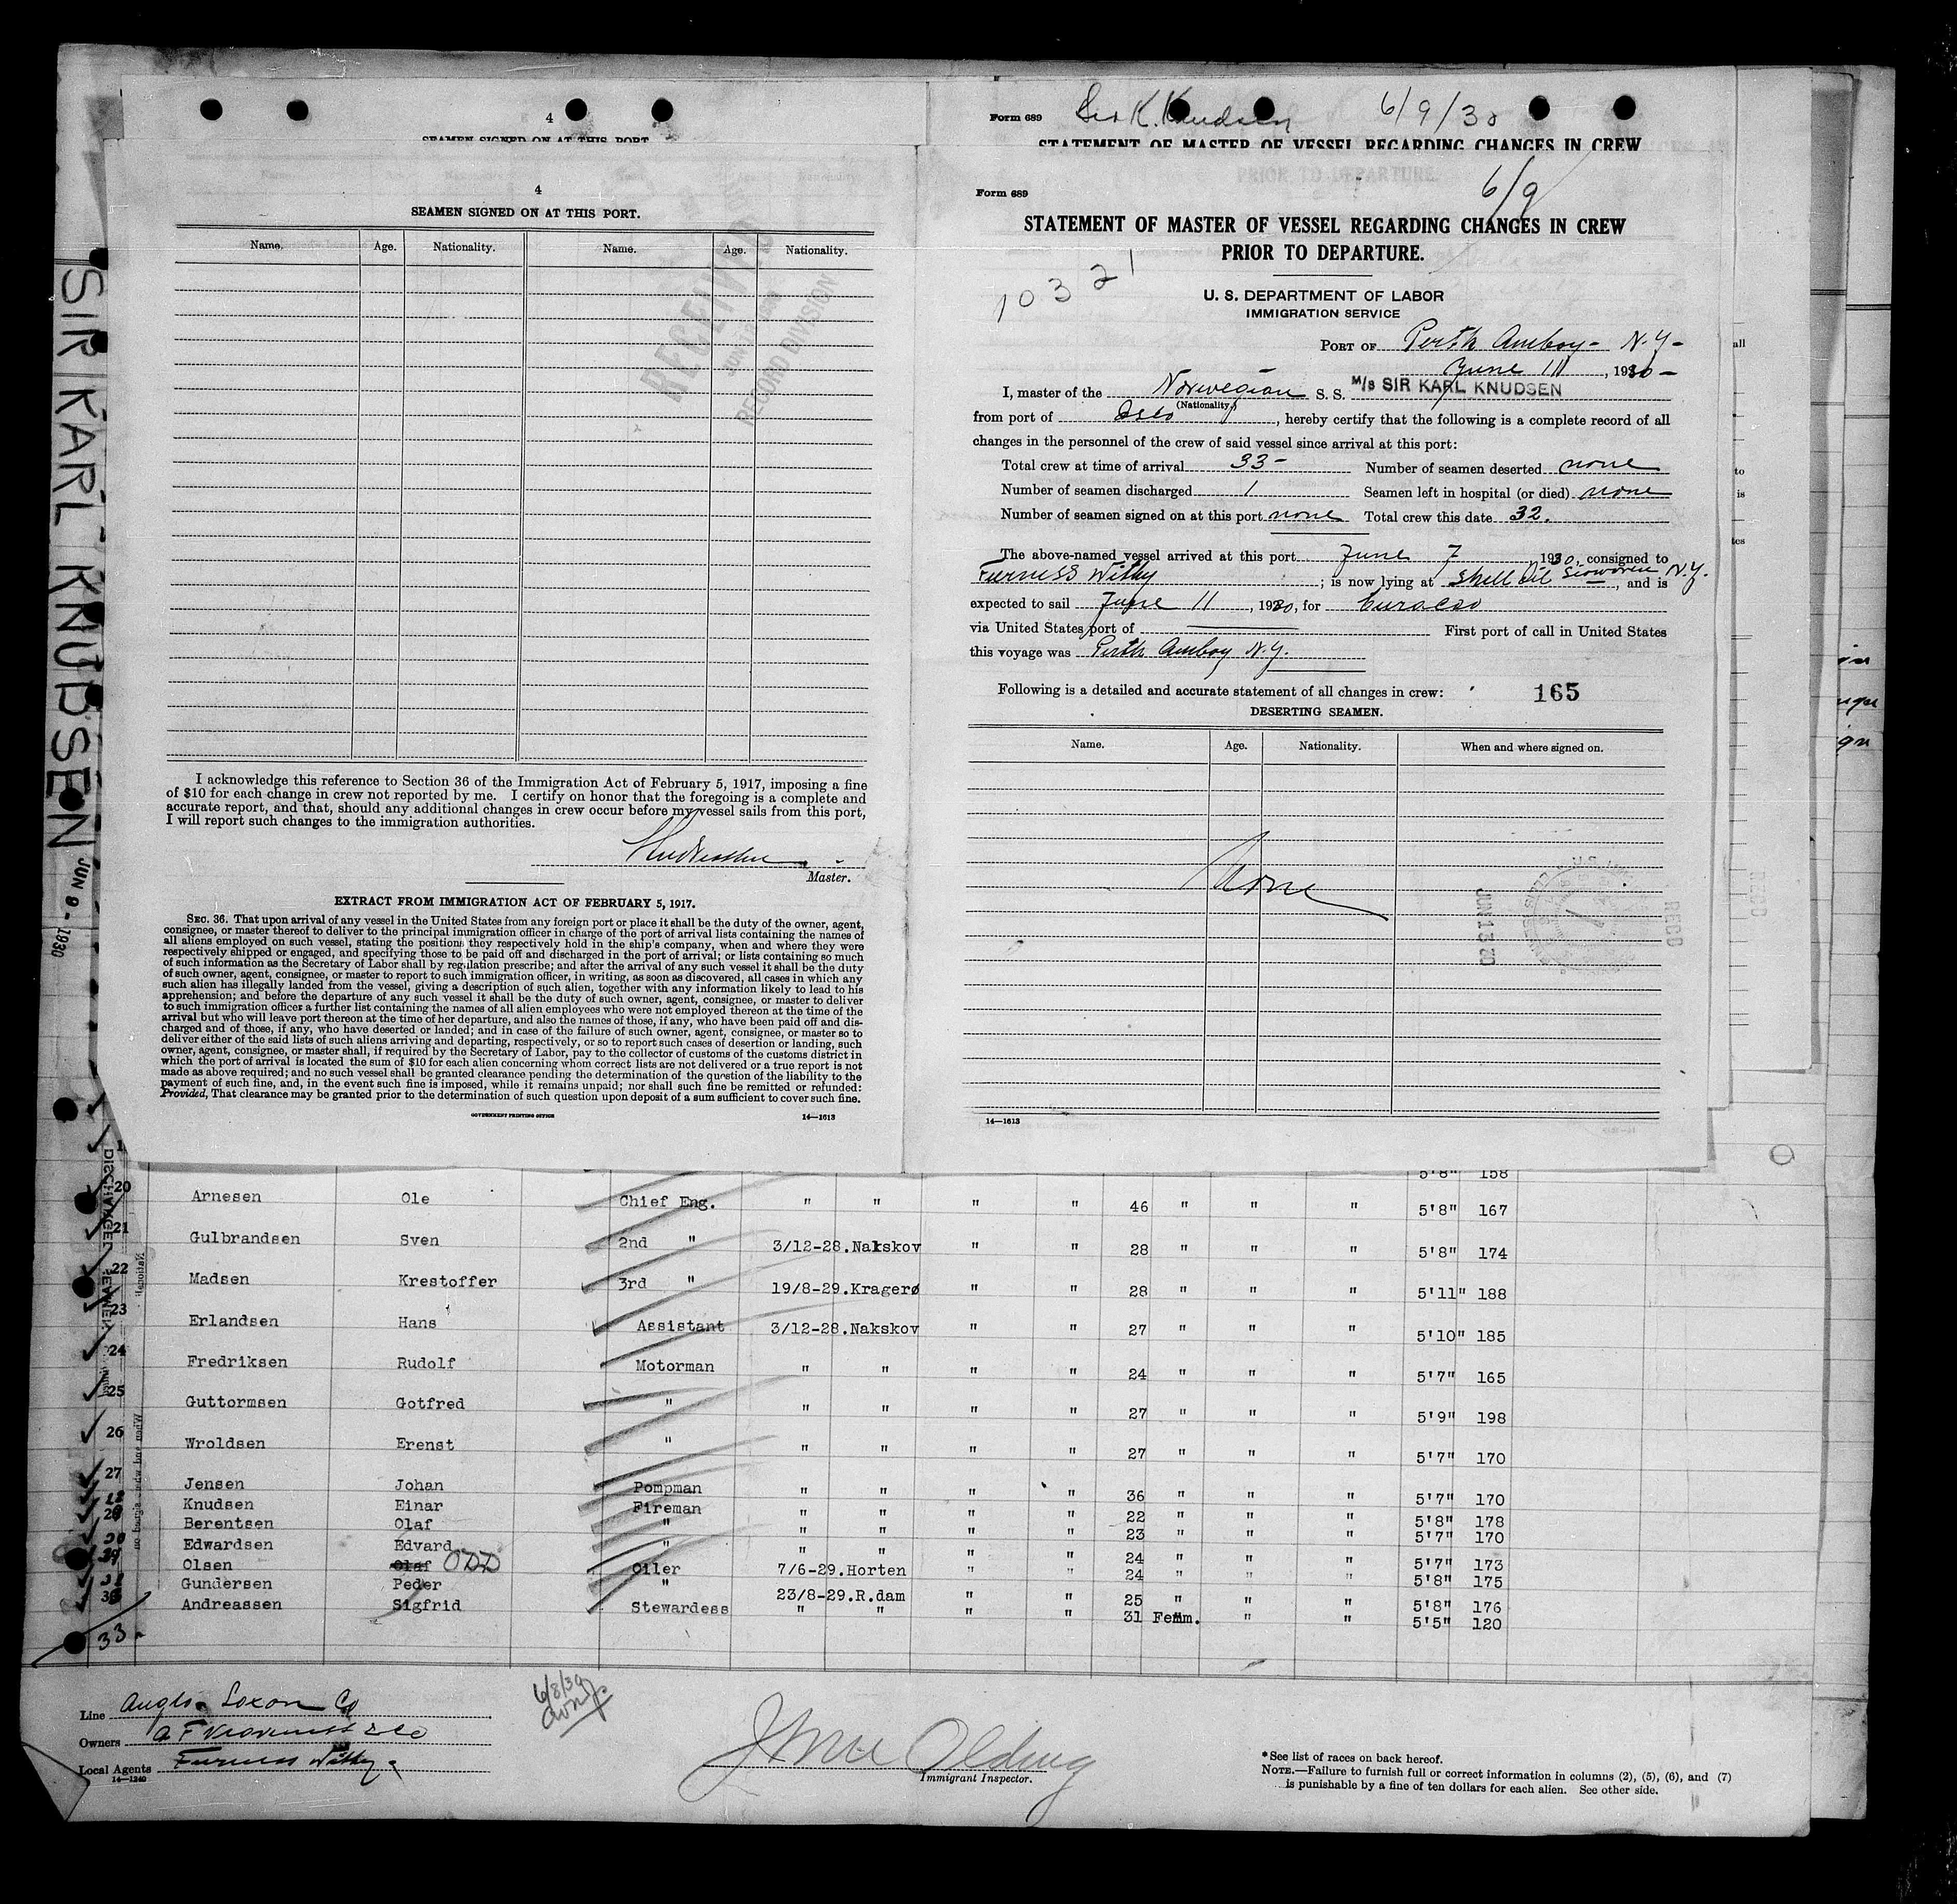 4
SEAMEN SIGNED ON AT THIS PORT.
4
SEAMEN SIGNED ON AT THIS PORT.
Name. Age. Nationality. Name. Age. Nationality.
RECEIVED
RECORD DIVISION
I acknowledge this reference to Section 36 of the Immigration Act of February 5, 1917, imposing a fine
of $10 for each change in crew not reported by me. I certify on honor that the foregoing is a complete and
accurate report, and that, should any additional changes in crew occur before my vessel sails from this port,
I will report such changes to the immigration authorities.
Master.
EXTRACT FROM IMMIGRATION ACT OF FEBRUARY 5, 1917.
SEC. 36. That upon arrival of any vessel in the United States from any foreign port or place it shall be the duty of the owner, agent,
consignee, or master thereof to deliver to the principal immigration officer in charge of the port of arrival lists containing the names of
all aliens employed on such vessel, stating the positions they respectively hold in the ship's company, when and where they were
respectively shipped or engaged, and specifying those to be paid off and discharged in the port of arrival; or lists containing so much
of such information as the Secretary of Labor shall by regulation prescribe; and after the arrival of any such vessel it shall be the duty
of such owner, agent, consignee, or master to report to such immigration officer, in writing, as soon as discovered, all cases in which any
such alien has illegally landed from the vessel, giving a description of such alien, together with any information likely to lead to his
apprehension; and before the departure of any such vessel it shall be the duty of such owner, agent, consignee, or master to deliver
to such immigration officer a further list containing the names of all alien employees who were not employed thereon at the time of the
arrival but who will leave port thereon at the time of her departure, and also the names of those, if any, who have been paid off and dis-
charged and of those, if any, who have deserted or landed; and in case of the failure of such owner, agent, consignee, or master so to
deliver either of the said lists of such aliens arriving and departing, respectively, or so to report such cases of desertion or landing, such
owner, agent, consignee, or master shall, if required by the Secretary of Labor, pay to the collector of customs of the customs district in
which the port of arrival is located the sum of $10 for each alien concerning whom correct lists are not delivered or a true report is not
made as above required; and no such vessel shall be granted clearance pending the determination of the question of the liability to the
payment of such fine, and, in the event such fine is imposed, while it remains unpaid; nor shall such fine be remitted or refunded:
Provided, That clearance may be granted prior to the determination of such question upon deposit of a sum sufficient to cover such fine.
GOVERNMENT PRINTING OFFICE 14—1613
Form 689 Sir K. Knudsen 6/9/30
STATEMENT OF MASTER OF VESSEL REGARDING CHANGES IN CREW
Form 689 6/9
STATEMENT OF MASTER OF VESSEL REGARDING CHANGES IN CREW
PRIOR TO DEPARTURE.
10321
U. S. DEPARTMENT OF LABOR
IMMIGRATION SERVICE
PORT OF Perth Amboy- N.Y-
June 11, 1930-
I, master of the Norwegian S. S. M/s SIR KARL KNUDSEN
(Nationality)
from port of Oslo, hereby certify that the following is a complete record of all
changes in the personnel of the crew of said vessel since arrival at this port:
Total crew at time of arrival 33- Number of seamen deserted none
Number of seamen discharged 1 Seamen left in hospital (or died) none
Number of seamen signed on at this port none Total crew this date 32.
The above-named vessel arrived at this port June 7 1930, consigned to
Furness Withy; is now lying at Shell Oil Sewaren N.Y., and is
expected to sail June 11, 1930, for Curacao
via United States port of First port of call in United States
this voyage was Perth Amboy N.Y.
Following is a detailed and accurate statement of all changes in crew: 165
DESERTING SEAMEN.
Name. Age. Nationality. When and where signed on.
None
JUN 13 30
RECD
14—1613
SIR KARL KNUDSEN JUN 9 - 1930
DISCHARGED SEAMEN
5'8" 158
20 Arnesen Ole Chief Eng. " " " " 46 " " " 5'8" 167
21 Gulbrandsen Sven 2nd " 3/12-28.Nakskov " " 28 " " " 5'8" 174
22 Madsen Krestoffer 3rd " 19/8-29.Kragerø " " 28 " " " 5'11" 188
23 Erlandsen Hans Assistant 3/12-28.Nakskov " " 27 " " " 5'10" 185
24 Fredriksen Rudolf Motorman " " " " 24 " " " 5'7" 165
25 Guttormsen Gotfred " " " " " 27 " " " 5'9" 198
26 Wroldsen Erenst " " " " " 27 " " " 5'7" 170
27 Jensen Johan Pompman " " " " 36 " " " 5'7" 170
Knudsen Einar Fireman " " " " 22 " " " 5'8" 178
Berentsen Olaf " " " " " 23 " " " 5'7" 170
Edwardsen Edvard " " " " " 24 " " " 5'7" 173
Olsen Olaf ODD Oiler 7/6-29.Horten " " 24 " " " 5'8" 175
Gundersen Peder " 23/8-29.R.dam " " 25 " " " 5'8" 176
Andreassen Sigfrid Stewardess " " " " 31 Femm. " " 5'5" 120
33
Line Anglo-Saxon Co
Owners
Local Agents Furness Withy
14—1240
6/8/30
Immigrant Inspector.
* See list of races on back hereof.
NOTE.—Failure to furnish full or correct information in columns (2), (5), (6), and (7)
is punishable by a fine of ten dollars for each alien. See other side.